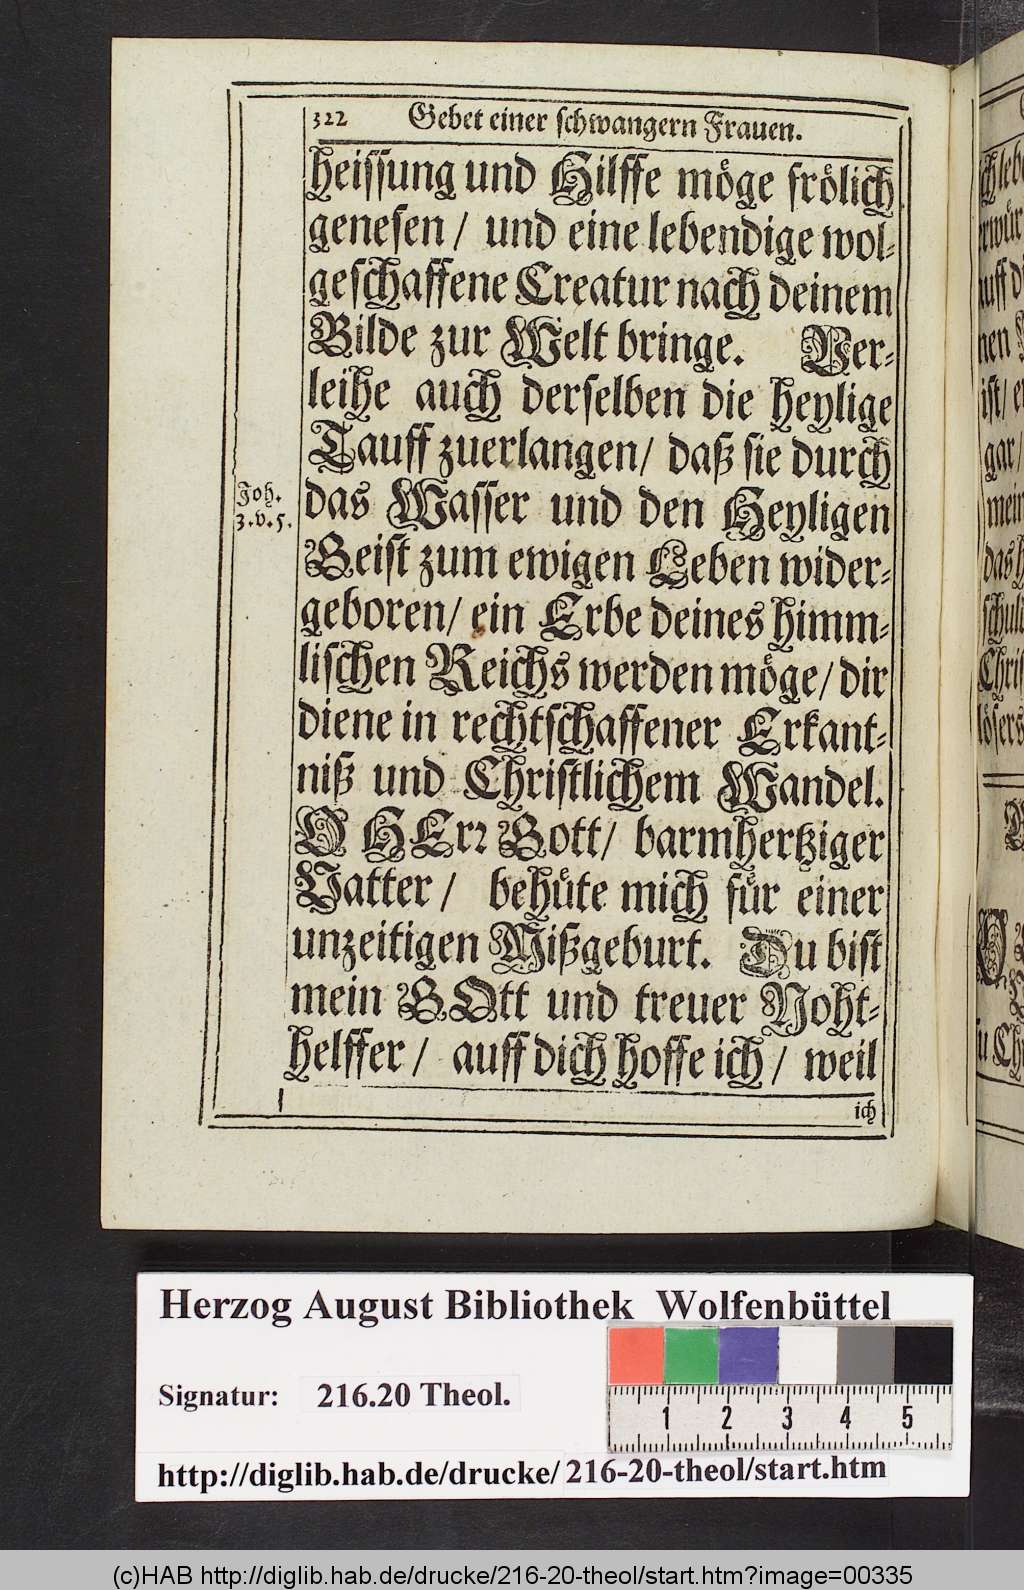 322 Gebet einer schwangern Frauen.
heissung und Hilffe möge frölich
genesen / und eine lebendige wol-
geschaffene Creatur nach deinem
Bilde zur Welt bringe. Ver-
leihe auch derselben die heylige
Tauff zuerlangen / daß sie durch
Joh.
3. v. 5.
das Wasser und den Heyligen
Geist zum ewigen Leben wider-
geboren / ein Erbe deines himm-
lischen Reichs werden möge / dir
diene in rechtschaffener Erkant-
niß und Christlichem Wandel.
O HErr Gott / barmhertziger
Vatter / behüte mich für einer
unzeitigen Mißgeburt. Du bist
mein GOtt und treuer Noht-
helffer / auff dich hoffe ich / weil
ich
Herzog August Bibliothek Wolfenbüttel
Signatur: 216.20 Theol.
1 2 3 4 5
http://diglib.hab.de/drucke/216-20-theol/start.htm
(c)HAB http://diglib.hab.de/drucke/216-20-theol/start.htm?image=00335